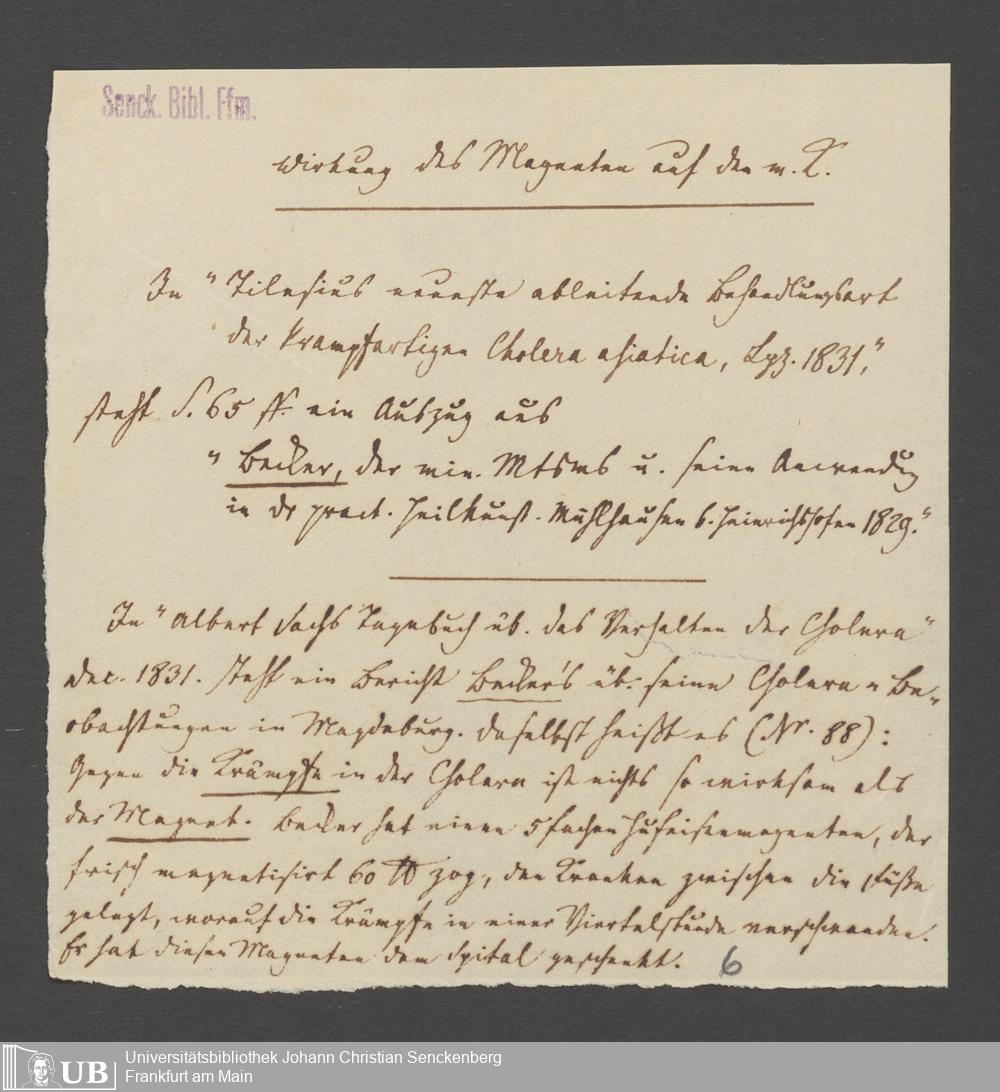 Senck. Bibl. Ffm.
Wirkung des Magneten auf den m. K.
In "Tilesius neueste ableitende Behandlungsart
der krampfartigen Cholera asiatica, Lpz. 1831,"
steht S. 65 ff. ein Auszug aus
"Becker, der min. Mtsmb u. seine Anwendung
in dr pract. Heilkunst. Mühlhausen b. Heinrichshofen 1829."
In "Albert Sachs Tagebuch üb. das Verhalten der Cholera"
Dec. 1831. steht ein Bericht Becker's üb. seine Cholera-Be-
obachtungen in Magdeburg. Daselbst heißt es (Nr. 88):
Gegen die Krämpfe in der Cholera ist nichts so wirksam als
der Magnet. Becker hat einen 5fachen Hufeisenmagneten, der
frisch magnetisirt 60 ℔ zog, den Kranken zwischen die Füße
gelegt, worauf die Krämpfe in einer Viertelstunde verschwanden.
Er hat diesen Magneten dem Spital geschenkt. 6
UB Universitätsbibliothek Johann Christian Senckenberg
Frankfurt am Main